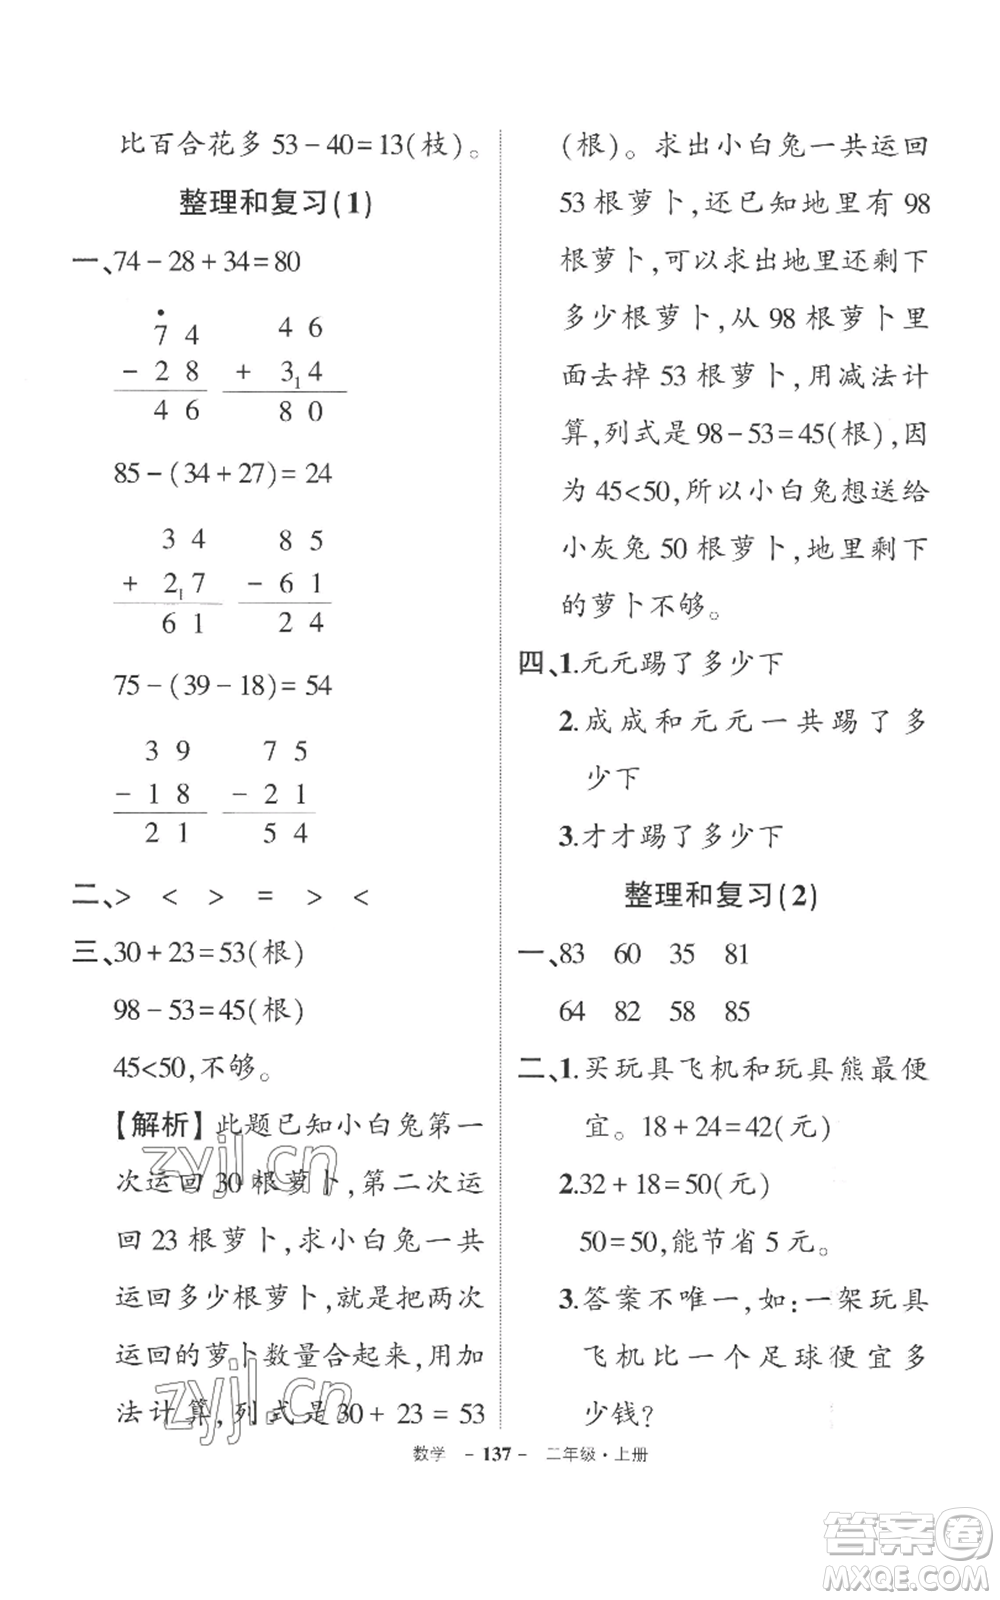 比百合花多53－40＝13(枝)。
整理和复习(1)
一、74－28＋34＝80
7 4    4 6
－ 2 8  ＋ 3₁4
4 6    8 0
85－(34＋27)＝24
3 4    8 5
＋ 2₁7  － 6 1
6 1    2 4
75－(39－18)＝54
3 9    7 5
－ 1 8  － 2 1
2 1    5 4
二、＞ ＜ ＞ ＝ ＞ ＜
三、30＋23＝53(根)
98－53＝45(根)
45<50,不够。
【解析】此题已知小白兔第一
次运回30根萝卜,第二次运
回23根萝卜,求小白兔一共
运回多少根萝卜,就是把两次
运回的萝卜数量合起来,用加
法计算,列式是30＋23＝53
(根)。求出小白兔一共运回
53根萝卜,还已知地里有98
根萝卜,可以求出地里还剩下
多少根萝卜,从98根萝卜里
面去掉53根萝卜,用减法计
算,列式是98－53＝45(根),因
为45<50,所以小白兔想送给
小灰兔50根萝卜,地里剩下
的萝卜不够。
四、1.元元踢了多少下
2.成成和元元一共踢了多
少下
3.才才踢了多少下
整理和复习(2)
一、83 60 35 81
64 82 58 85
二、1.买玩具飞机和玩具熊最便
宜。18＋24＝42(元)
2.32＋18＝50(元)
50＝50,能节省5元。
3.答案不唯一,如:一架玩具
飞机比一个足球便宜多
少钱?
数学 －137－ 二年级·上册
zyjl.cn
zyjl.cn
答案卷
MXQE.COM